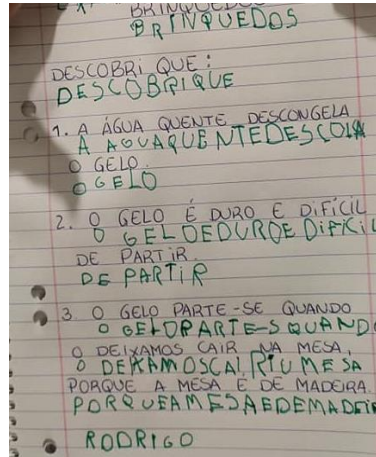 BRINQUEDOS
BRINQUEDOS
DESCOBRI QUE:
DESCOBRIQUE
1. A ÁGUA QUENTE DESCONGELA
A AGUAQUENTEDESCOLA
O GELO.
O GELO
2. O GELO É DURO E DIFÍCIL
O GELOEDURDE DIFICIL
DE PARTIR.
DE PARTIR
3. O GELO PARTE-SE QUANDO
O GELOPARTE-S QUANDO
O DEIXAMOS CAIR NA MESA,
O DEIXAMOSCAIRIUMESA
PORQUE A MESA É DE MADEIRA.
PORQUEAMESAEDEMADEI
RODRIGO